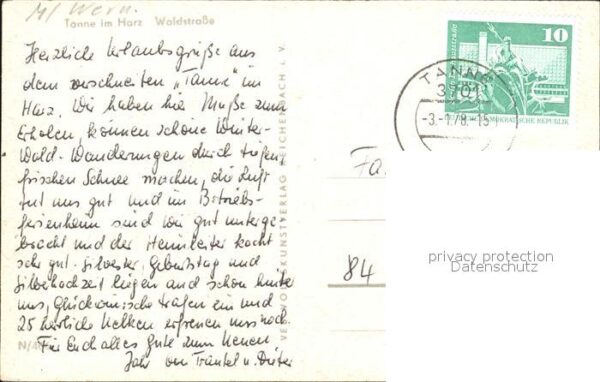 Tanne im Harz Waldstraße
Herzliche Urlaubsgrüße aus
dem verschneiten „Tanne" im
Harz. Wir haben hier Muße zum
Erholen, können schöne Winter-
Wald-Wanderungen durch tiefen,
frischen Schnee machen, die Luft
tut uns gut und im Betriebs-
ferienheim sind wir gut unterge-
bracht und der Heimleiter kocht
sehr gut. Silvester, Geburtstag und
Silberhochzeit liegen auch schon hinter
uns, Glückwünsche trafen ein und
25 herrliche Nelken erfreuen uns noch.
Für Euch alles Gute zum neuen
Jahr von Träutel u. Dieter
N/4
VEB VOLKSKUNSTVERLAG REICHENBACH i. V.
10
DEMOKRATISCHE REPUBLIK
TANNE
3701
-3.-1.78.-15
Fa
84
privacy protection
Datenschutz